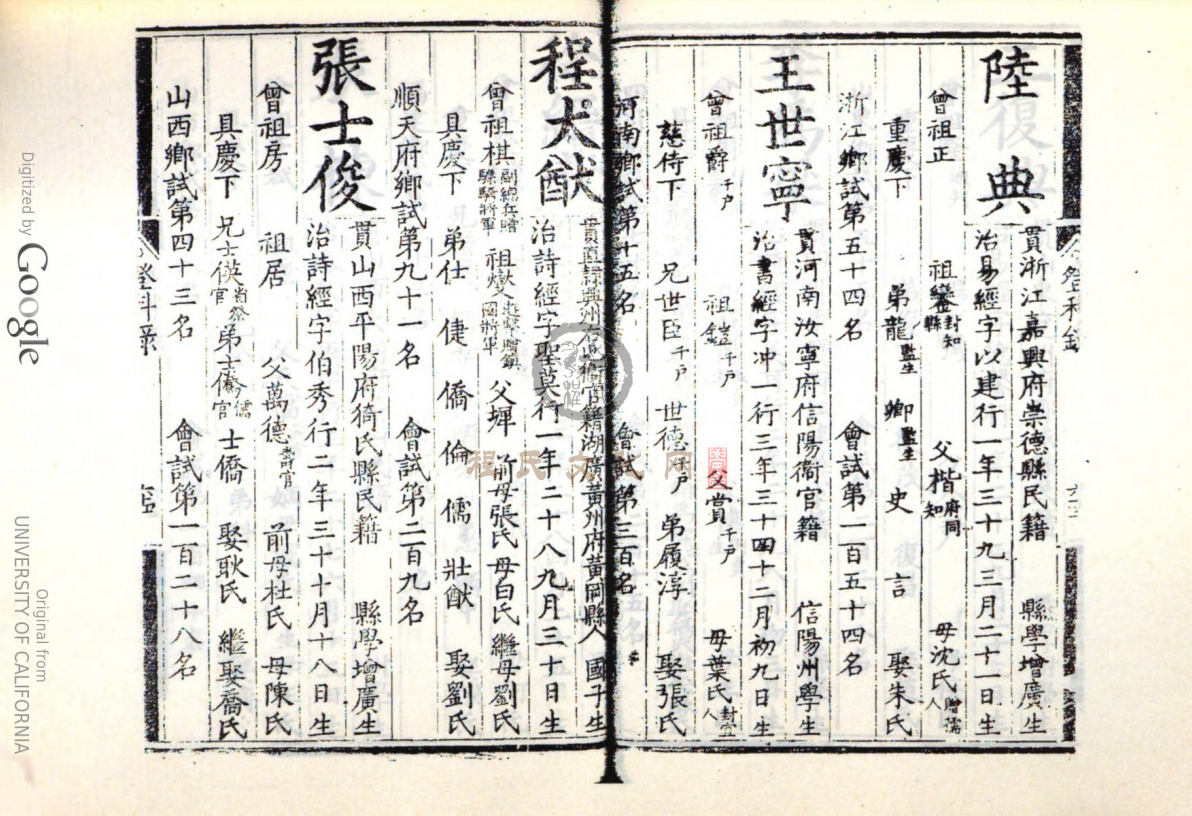 陸典
貫浙江嘉興府崇德縣民籍 縣學增廣生
治易經字以建行一年三十九三月二十一日生
曾祖正 祖 封知縣 父楷府同知 母沈氏贈孺人
重慶下 弟龍監生 卿監生 史 言 娶朱氏
浙江鄉試第五十四名 會試第一百五十四名
王世寧
貫河南汝寧府信陽衞官籍 信陽州學生
治書經字冲一行三年三十四十二月初九日生
曾祖爵千户 祖鎧千户 父賞千户 母葉氏封宜人
慈侍下 兄世臣千户 世德千户 弟履淳 娶張氏
河南鄉試第十五名 會試第三百名
程大猷
貫直隸 州 籍湖廣黄州府黄岡縣人 國子生
治詩經字聖謨行一年二十八九月三十日生
曾祖棋副總兵贈驃騎將軍 祖 贈鎮國將軍 父墀 前母張氏 母白氏 繼母劉氏
具慶下 弟仕 倢 僑 倫 儒 壯猷 娶劉氏
順天府鄉試第九十一名 會試第二百九名
張士俊
貫山西平陽府猗氏縣民籍 縣學增廣生
治詩經字伯秀行二年三十十月十八日生
曾祖房 祖居 父萬德壽官 前母杜氏 母陳氏
具慶下 兄士偀省祭官 弟士 儒官 士僑 娶耿氏 繼娶喬氏
山西鄉試第四十三名 會試第一百二十八名
登科錄
程氏文化网
Digitized by Google
Original from
UNIVERSITY OF CALIFORNIA